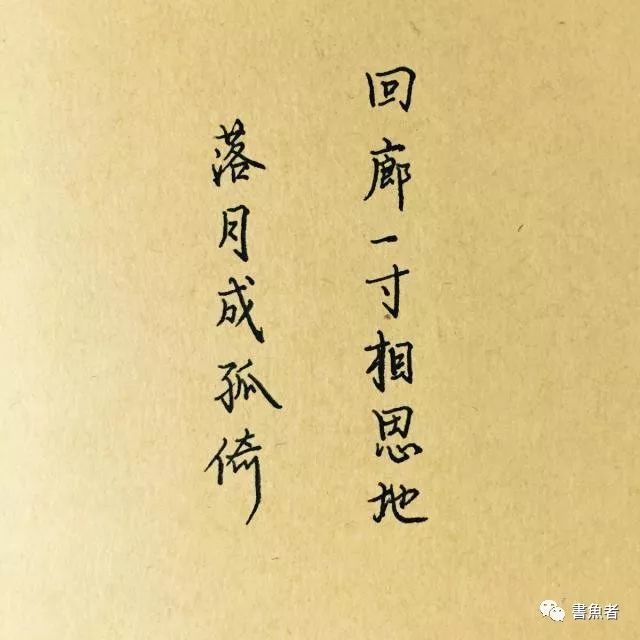 回廊一寸相思地
落月成孤倚
書魚者